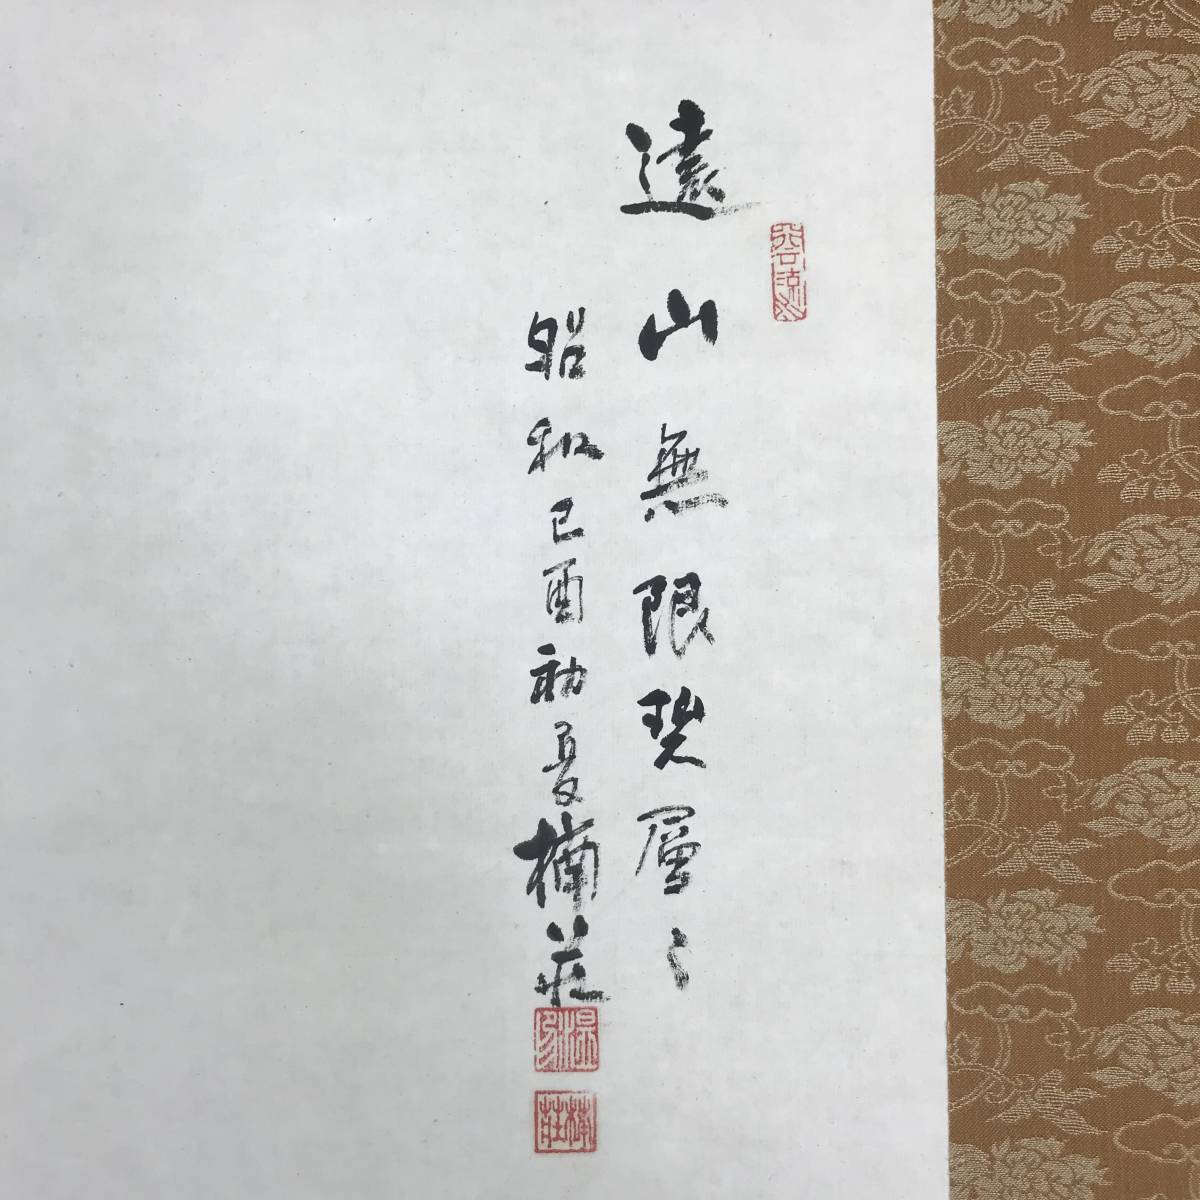 遠山無限碧層々
昭和己酉初夏楠荘
楠荘